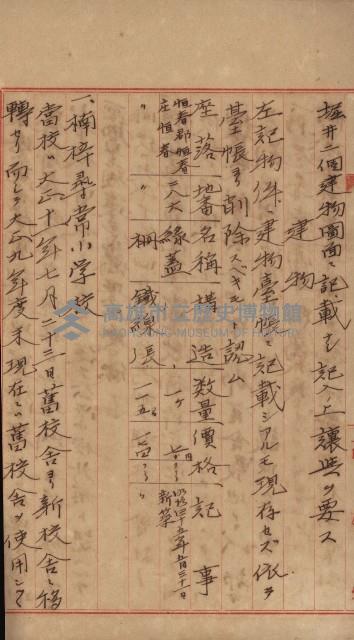 堀井二個建物圖面ニ記載ナシ記入ノ上讓與ヲ要ス
建物
左記物件ハ建物臺帳ニ記載シアルモ現存セズ依テ
臺帳ヨリ削除スベキモノト認ム
座落 地番 名稱 構造 数量 價格 記事
恒春郡恒春庄恒春 三八六 緣蓋 一ヶ 明治四十五年三月三十一日新築
〃 〃 柵 鐵線張
一、楠梓尋常小学校
當校ハ大正十年七月二十三日舊校舍ヨリ新校舍ニ移
轉セリ而シテ大正九年度末現在ハ舊校舍ヲ使用シタ
高雄市立歷史博物館
KAOHSIUNG MUSEUM OF HISTORY